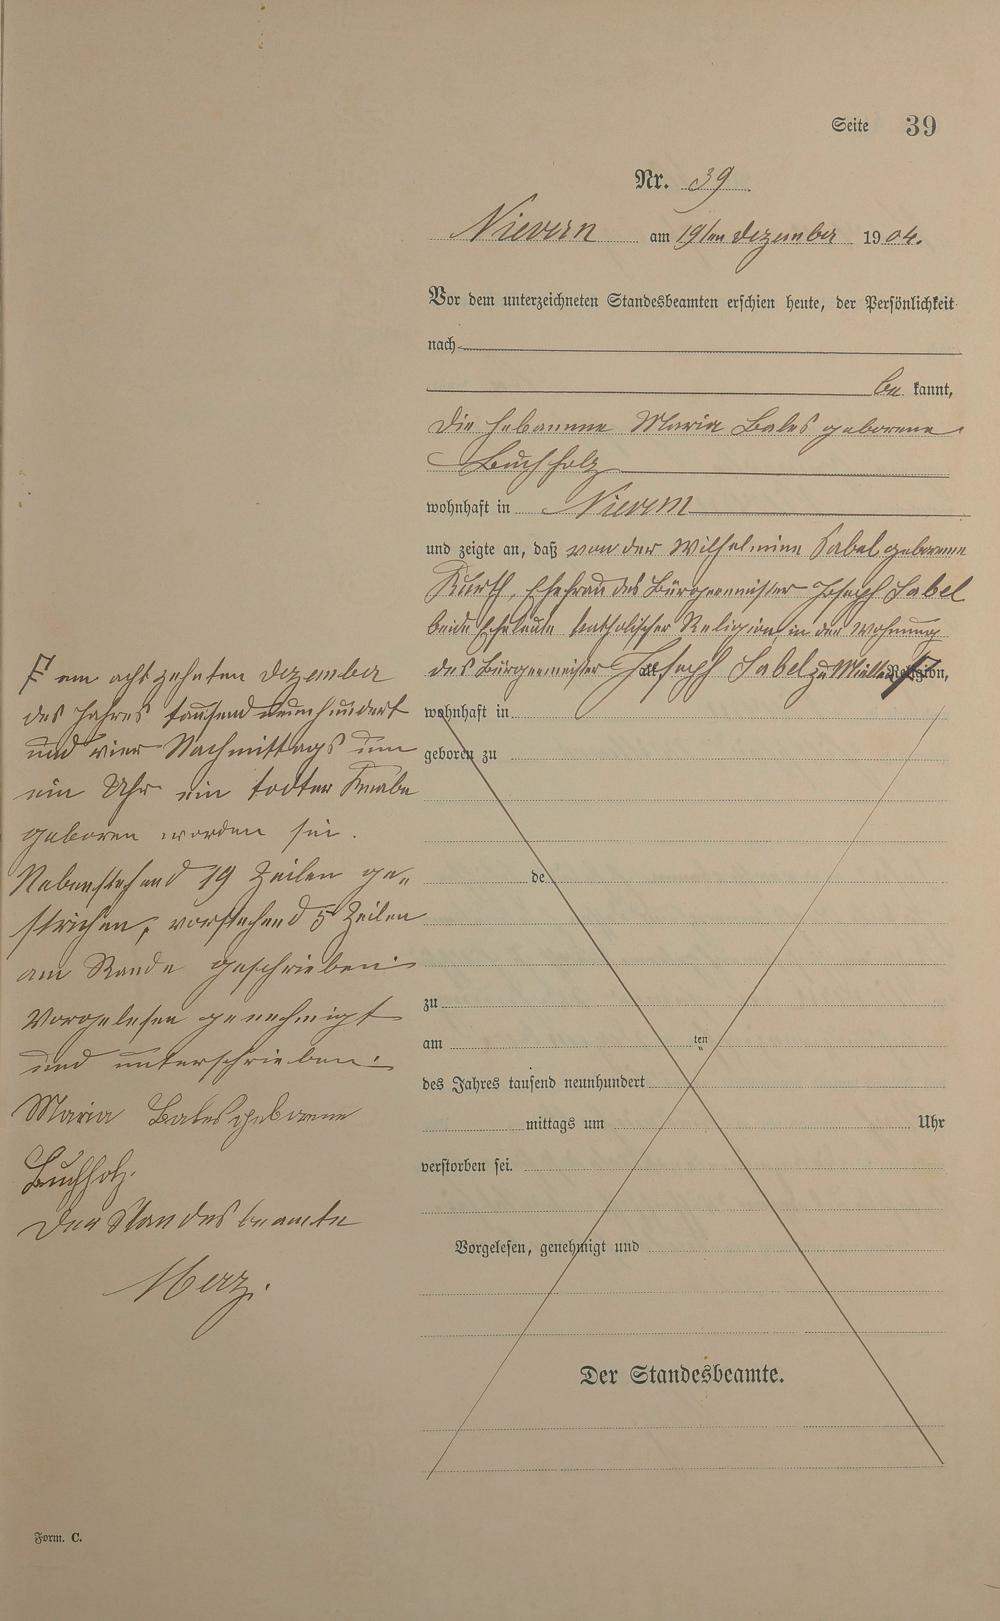 Seite 39
Nr. 39
Nievern am 19ten Dezember 1904.
Vor dem unterzeichneten Standesbeamten erschien heute, der Persönlichkeit
nach
be kannt,
die Hebamme Maria Bales geborene
Buchholz
wohnhaft in Nievern
und zeigte an, daß von der Wilhelmine Sabel geborene
Kurth, Ehefrau des Bürgermeister Joseph Sabel
beide Eheleute katholischer Religion, in der Wohnung
des Bürgermeister Joseph Sabel zu alt Religion,
wohnhaft in
geboren zu
de
zu
am ten
des Jahres tausend neunhundert
mittags um Uhr
verstorben sei.
Vorgelesen, genehmigt und
Der Standesbeamte.
am acht zehnten Dezember
des Jahres tausend neunhundert
und vier Nachmittags um
ein Uhr ein todter Knabe
geboren worden sei.
Nebenstehend 19 Zeilen ge„
strichen, vorstehend 5 Zeilen
am Rande geschrieben.
Vorgelesen genehmigt
und unterschrieben.
Maria Bales geborene
Buchholz.
Der Standesbeamte
Merz.
Form. C.